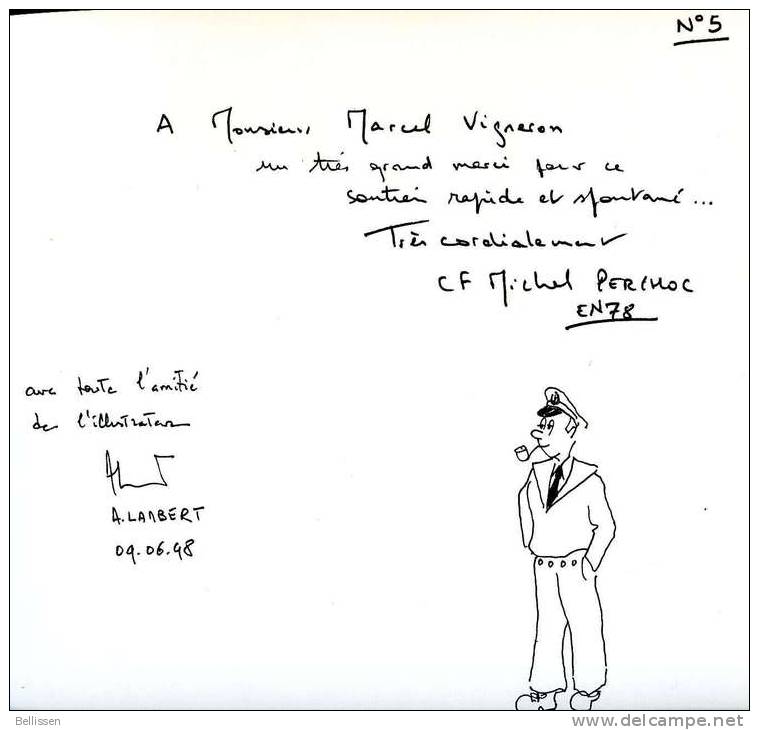 N° 5
A Monsieur Marcel Vigneron
un très grand merci pour ce
soutien rapide et spontané...
Très cordialement
CF Michel PERCHOC
EN78
avec toute l'amitié
de l'illustrateur
A. LAMBERT
09.06.98
Bellissen
www.delcampe.net